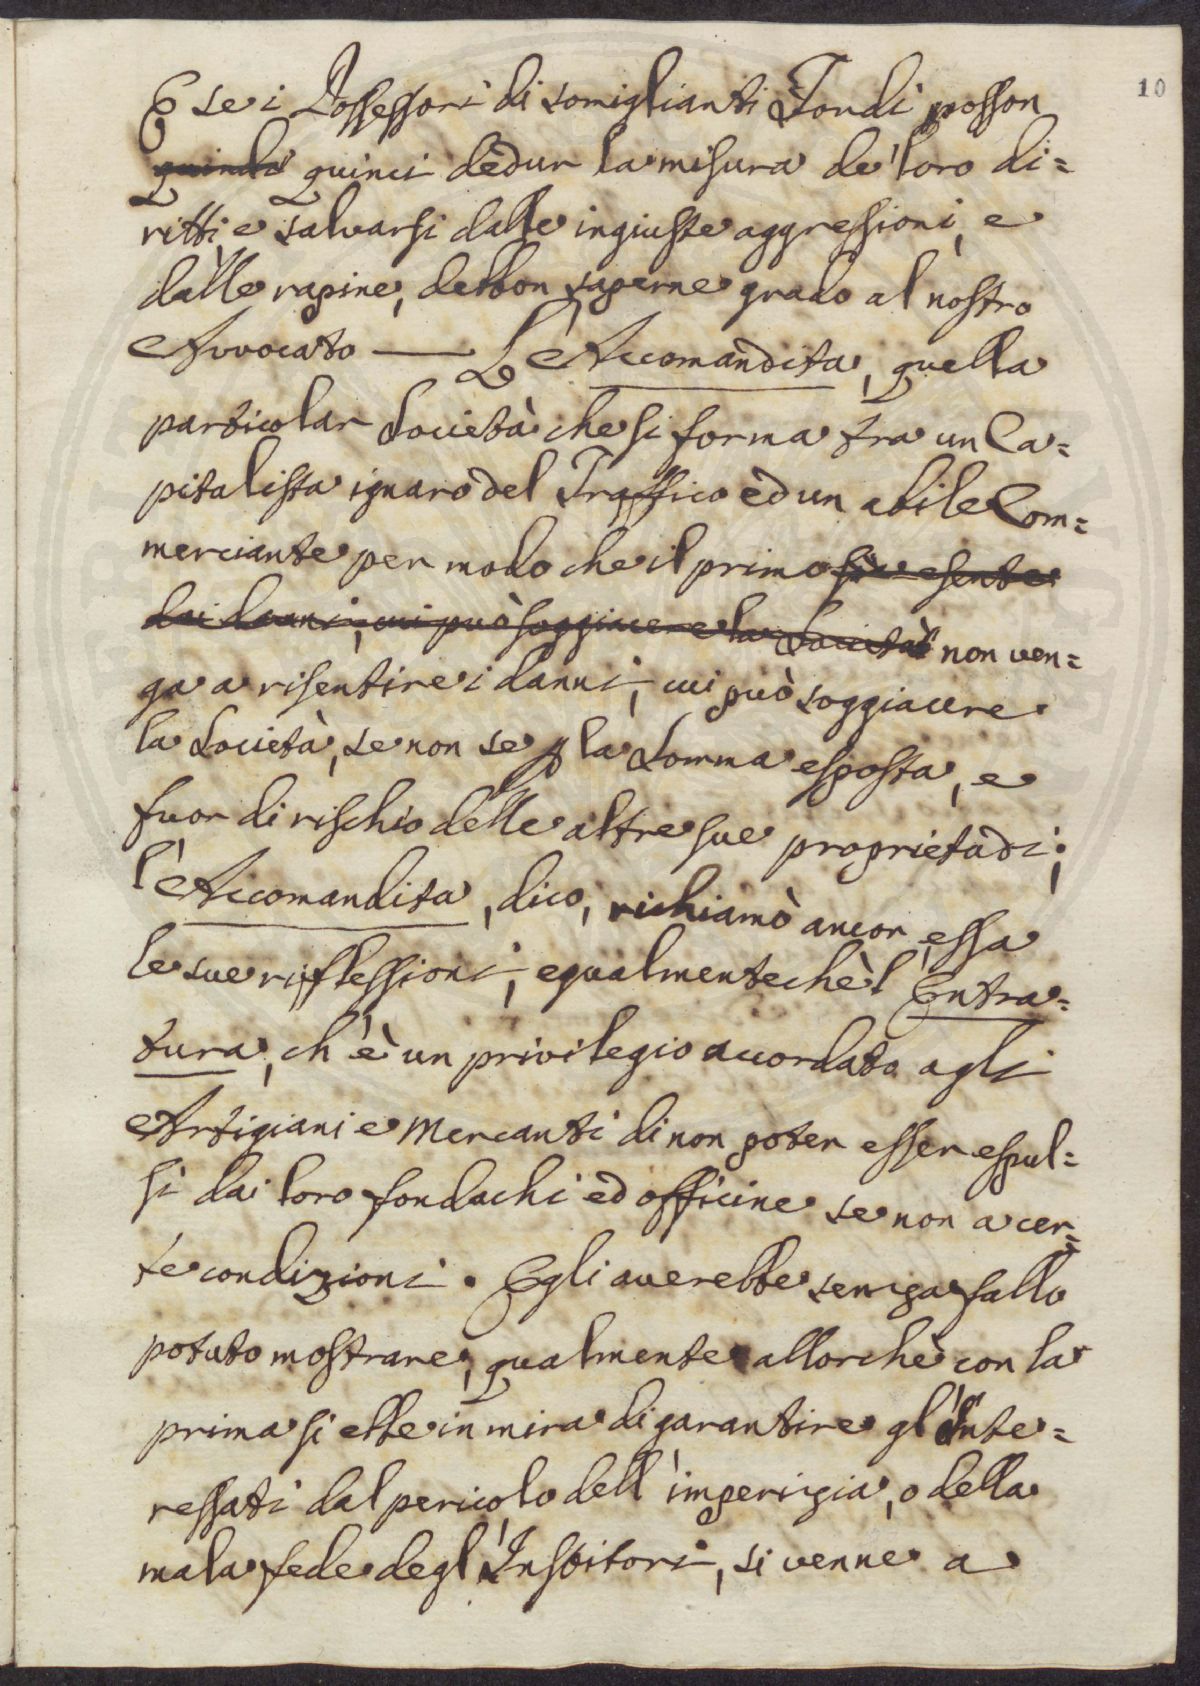 10
E se i Possessori di somiglianti Fondi posson
quindi quinci dedur la misura de' loro di=
ritti, e salvarsi dalle ingiuste aggressioni, e
dalle rapine, debbon saperne grado al nostro
Avvocato — L'Accomandita, quella
particolar Società che si forma tra un Ca=
pitalista ignaro del Traffico ed un abile Com=
merciante per modo che il primo sia esente
dai danni, cui può soggiacere la Società non ven=
ga a risentire i danni, cui può soggiacere
la Società, se non se p la Somma esposta, e
fuor di rischio delle altre sue proprietadi;
l'Accomandita, dico, richiamò ancor essa
le sue riflessioni, egualmente chè l'Entra=
tura, ch'è un privilegio accordato agli
Artigiani e Mercanti di non poter esser espul=
si dai loro fondachi ed officine se non a cer=
te condizioni. Egli averebbe senza fallo
potuto mostrare, qualmente allorchè con la
prima si ebbe in mira di garantire gl'Inte=
ressati dal pericolo dell'imperizia, o della
mala fede degl'Institori, si venne a